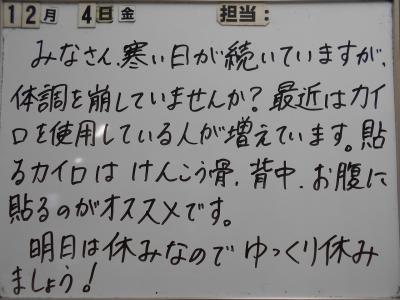 12月 4日 金 担当:
みなさん、寒い日が続いていますが、
体調を崩していませんか?最近はカイ
ロを使用している人が増えています。貼
るカイロは けんこう骨、背中、お腹に
貼るのがオススメです。
明日は休みなので ゆっくり休み
ましょう!